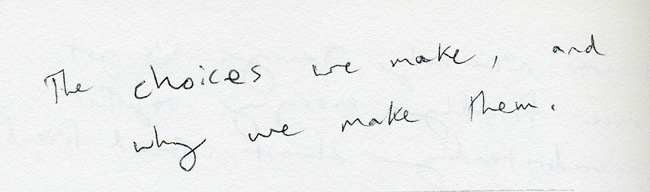 The choices we make, and
why we make them.